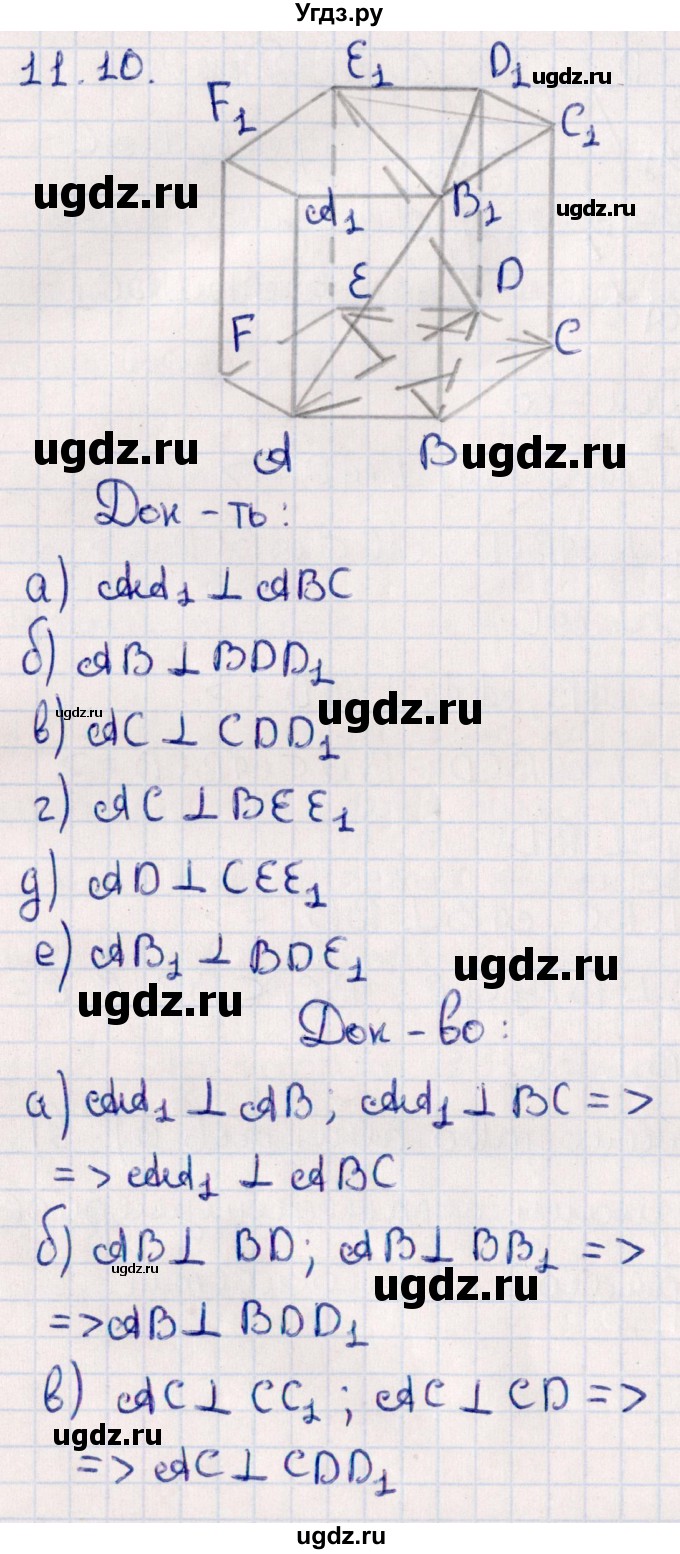 Угдз.ру
11.10.
E₁ D₁ ugdz.ru
F₁ C₁
ugdz.ru ugdz.ru
A₁ B₁
E D
F C
ugdz.ru A B ugdz.ru
Док-ть:
а) AA₁ ⊥ ABC
б) AB ⊥ BDD₁
ugdz.ru ugdz.ru
в) AC ⊥ CDD₁
г) AC ⊥ BEE₁
д) AD ⊥ CEE₁
е) AB₁ ⊥ BDE₁
ugdz.ru
ugdz.ru
Док-во:
а) AA₁ ⊥ AB; AA₁ ⊥ BC =>
=> AA₁ ⊥ ABC
б) AB ⊥ BD; AB ⊥ BB₁ =>
ugdz.ru ugdz.ru
=> AB ⊥ BDD₁
в) AC ⊥ CC₁; AC ⊥ CD =>
ugdz.ru
=> AC ⊥ CDD₁
ugdz.ru